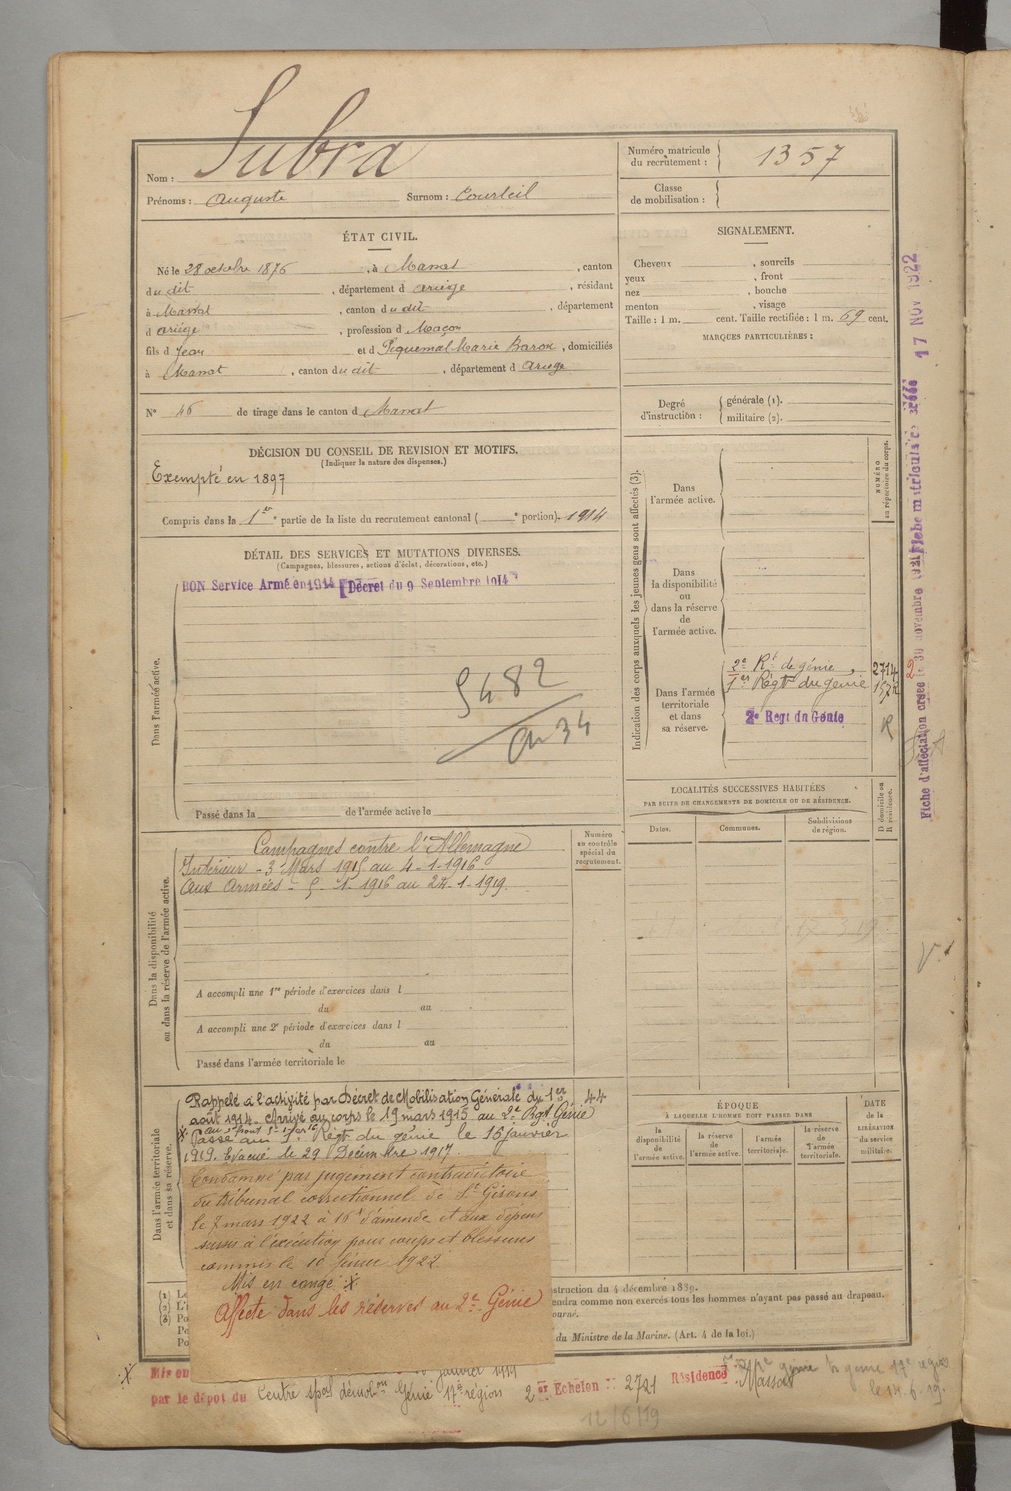 Nom : Subra
Prénoms : Auguste Surnom : Courteil
Numéro matricule du recrutement : 1357
Classe de mobilisation :
ÉTAT CIVIL.
Né le 28 octobre 1876, à Massat, canton
du dit, département d ariège, résidant
à Massat, canton du dit, département
d ariège, profession d Maçon
fils d Jean et d Piquemal Marie Baron, domiciliés
à Massat, canton du dit, département d Ariège
N° 46 de tirage dans le canton d Massat
SIGNALEMENT.
Cheveux , sourcils
yeux , front
nez , bouche
menton , visage
Taille : 1 m. cent. Taille rectifiée : 1 m. 69 cent.
MARQUES PARTICULIÈRES :
Degré d'instruction : générale (1).
militaire (2).
DÉCISION DU CONSEIL DE REVISION ET MOTIFS.
(Indiquer la nature des dispenses.)
Exempté en 1897
Compris dans la 1ère partie de la liste du recrutement cantonal ( e portion). 1914
DÉTAIL DES SERVICES ET MUTATIONS DIVERSES.
(Campagnes, blessures, actions d'éclat, décorations, etc.)
BON Service Armé en 1914 Décret du 9 Septembre 1914
Dans l'armée active.
5482
34
Passé dans la de l'armée active le
Indication des corps auxquels les jeunes gens sont affectés (3).
NUMÉRO au répertoire du corps.
Dans l'armée active.
Dans la disponibilité ou dans la réserve de l'armée active.
Dans l'armée territoriale et dans sa réserve.
2e Rt de génie 2714
1er Régt du génie
2e Regt du Génie R
Fiche d'affectation créée le 30 novembre 1921 Fiche matriculaire créée 17 NOV 1922
LOCALITÉS SUCCESSIVES HABITÉES
PAR SUITE DE CHANGEMENTS DE DOMICILE OU DE RÉSIDENCE.
Dates. Communes. Subdivisions de région. D domicile ou R résidence.
Dans la disponibilité ou dans la réserve de l'armée active.
Numéro au contrôle spécial du recrutement.
Campagnes contre l'Allemagne
Intérieur - 3 Mars 1915 au 4-1-1916.
Aux Armées - 5-1-1916 au 24-1-1919.
A accompli une 1re période d'exercices dans l
du au
A accompli une 2e période d'exercices dans l
du au
Passé dans l'armée territoriale le
Dans l'armée territoriale et dans sa réserve.
Rappelé à l'activité par Décret de Mobilisation Générale du 1er 44
août 1914. Arrivé au corps le 19 mars 1915 au 2e Rgt Génie
Passé au 1er Régt du génie le 16 janvier
1919. Evacué le 29 Décembre 1917.
Condamné par jugement contradictoire
du tribunal correctionnel de St Girons
le 7 mars 1922 à 16f d'amende et aux dépens
sursis à l'exécution pour coups et blessures
commis le 10 février 1922
Mis en congé X
Affecté dans les réserves au 2e Génie
ÉPOQUE
À LAQUELLE L'HOMME DOIT PASSER DANS
la disponibilité de l'armée active. la réserve de l'armée active. l'armée territoriale. la réserve de l'armée territoriale.
DATE de la LIBÉRATION du service militaire.
struction du 4 décembre 1889.
endra comme non exercés tous les hommes n'ayant pas passé au drapeau.
ourné.
du Ministre de la Marine. (Art. 4 de la loi.)
X Mis en janvier 1919
par le dépôt du Centre spal démolon Génie 17e région 2er Echelon 2721 Résidence Massat
le 14-6-19.
12/6/19